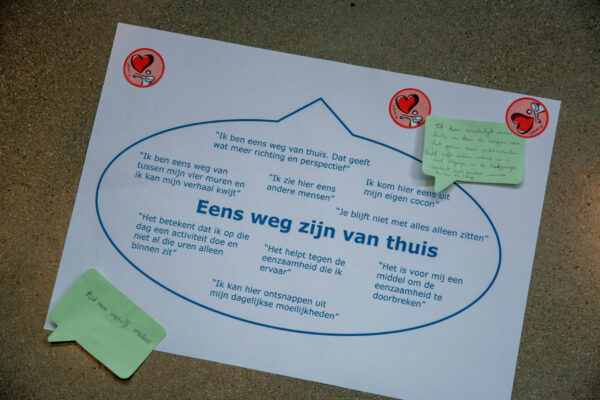 "Ik ben eens weg van thuis. Dat geeft
wat meer richting en perspectief"
"Ik ben eens weg van
tussen mijn vier muren en
ik kan mijn verhaal kwijt"
"Ik zie hier eens
andere mensen"
Ik kom hier eens uit
mijn eigen cocon"
"Je blijft niet met alles alleen zitten"
Eens weg zijn van thuis
"Het betekent dat ik op die
dag een activiteit doe en
niet al die uren alleen
binnen zit"
"Het helpt tegen de
eenzaamheid die ik
ervaar"
"Het is voor mij een
middel om de
eenzaamheid te
doorbreken"
"Ik kan hier ontsnappen uit
mijn dagelijkse moeilijkheden"